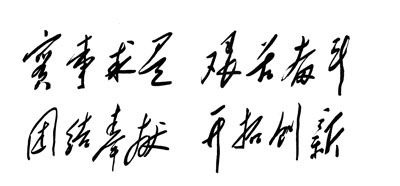 实事求是 艰苦奋斗
团结奉献 开拓创新